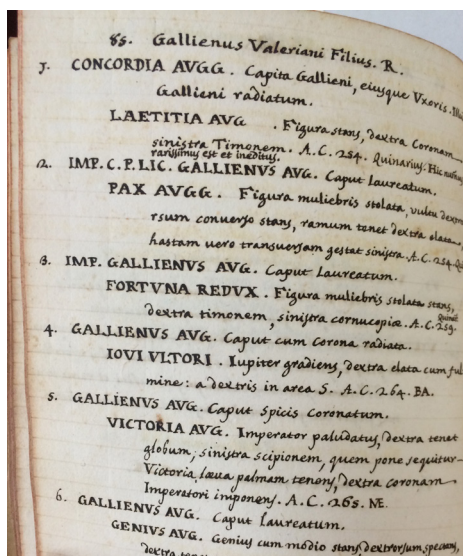 85. Gallienus Valeriani Filius. R.
1. CONCORDIA AVGG. Capita Gallieni, eiusque Vxoris. Illud
Gallieni radiatum.
LAETITIA AVG . Figura stans, dextra Coronam
sinistra Timonem. A.C. 254. Quinarius. Hic
rarissimus est et ineditus.
2. IMP. C. P. LIC. GALLIENVS AVG. Caput Laureatum.
PAX AVGG. Figura muliebris stolata, vultu
rsum converso stans, ramum tenet dextra elata,
hastam uero transuersam gestat sinistra. A.C. 254.
3. IMP. GALLIENVS AVG. Caput Laureatum.
FORTVNA REDVX. Figura muliebris stolata stans,
dextra timonem, sinistra cornucopiæ. A.C. 259.
4. GALLIENVS AVG. Caput cum Corona radiata.
IOVI VLTORI. Iupiter gradiens, dextra elata cum ful
mine: a dextris in area S. A.C. 264. BA.
5. GALLIENVS AVG. Caput Spicis Coronatum.
VICTORIA AVG. Imperator paludatus, dextra tenet
globum, sinistra scipionem, quem pone sequitur
Victoria, læua palmam tenens, dextra coronam
Imperatori imponens. A.C. 265. NE.
6. GALLIENVS AVG. Caput laureatum.
GENIVS AVG. Genius cum modio stans, dextrorsum spectans,
dextra